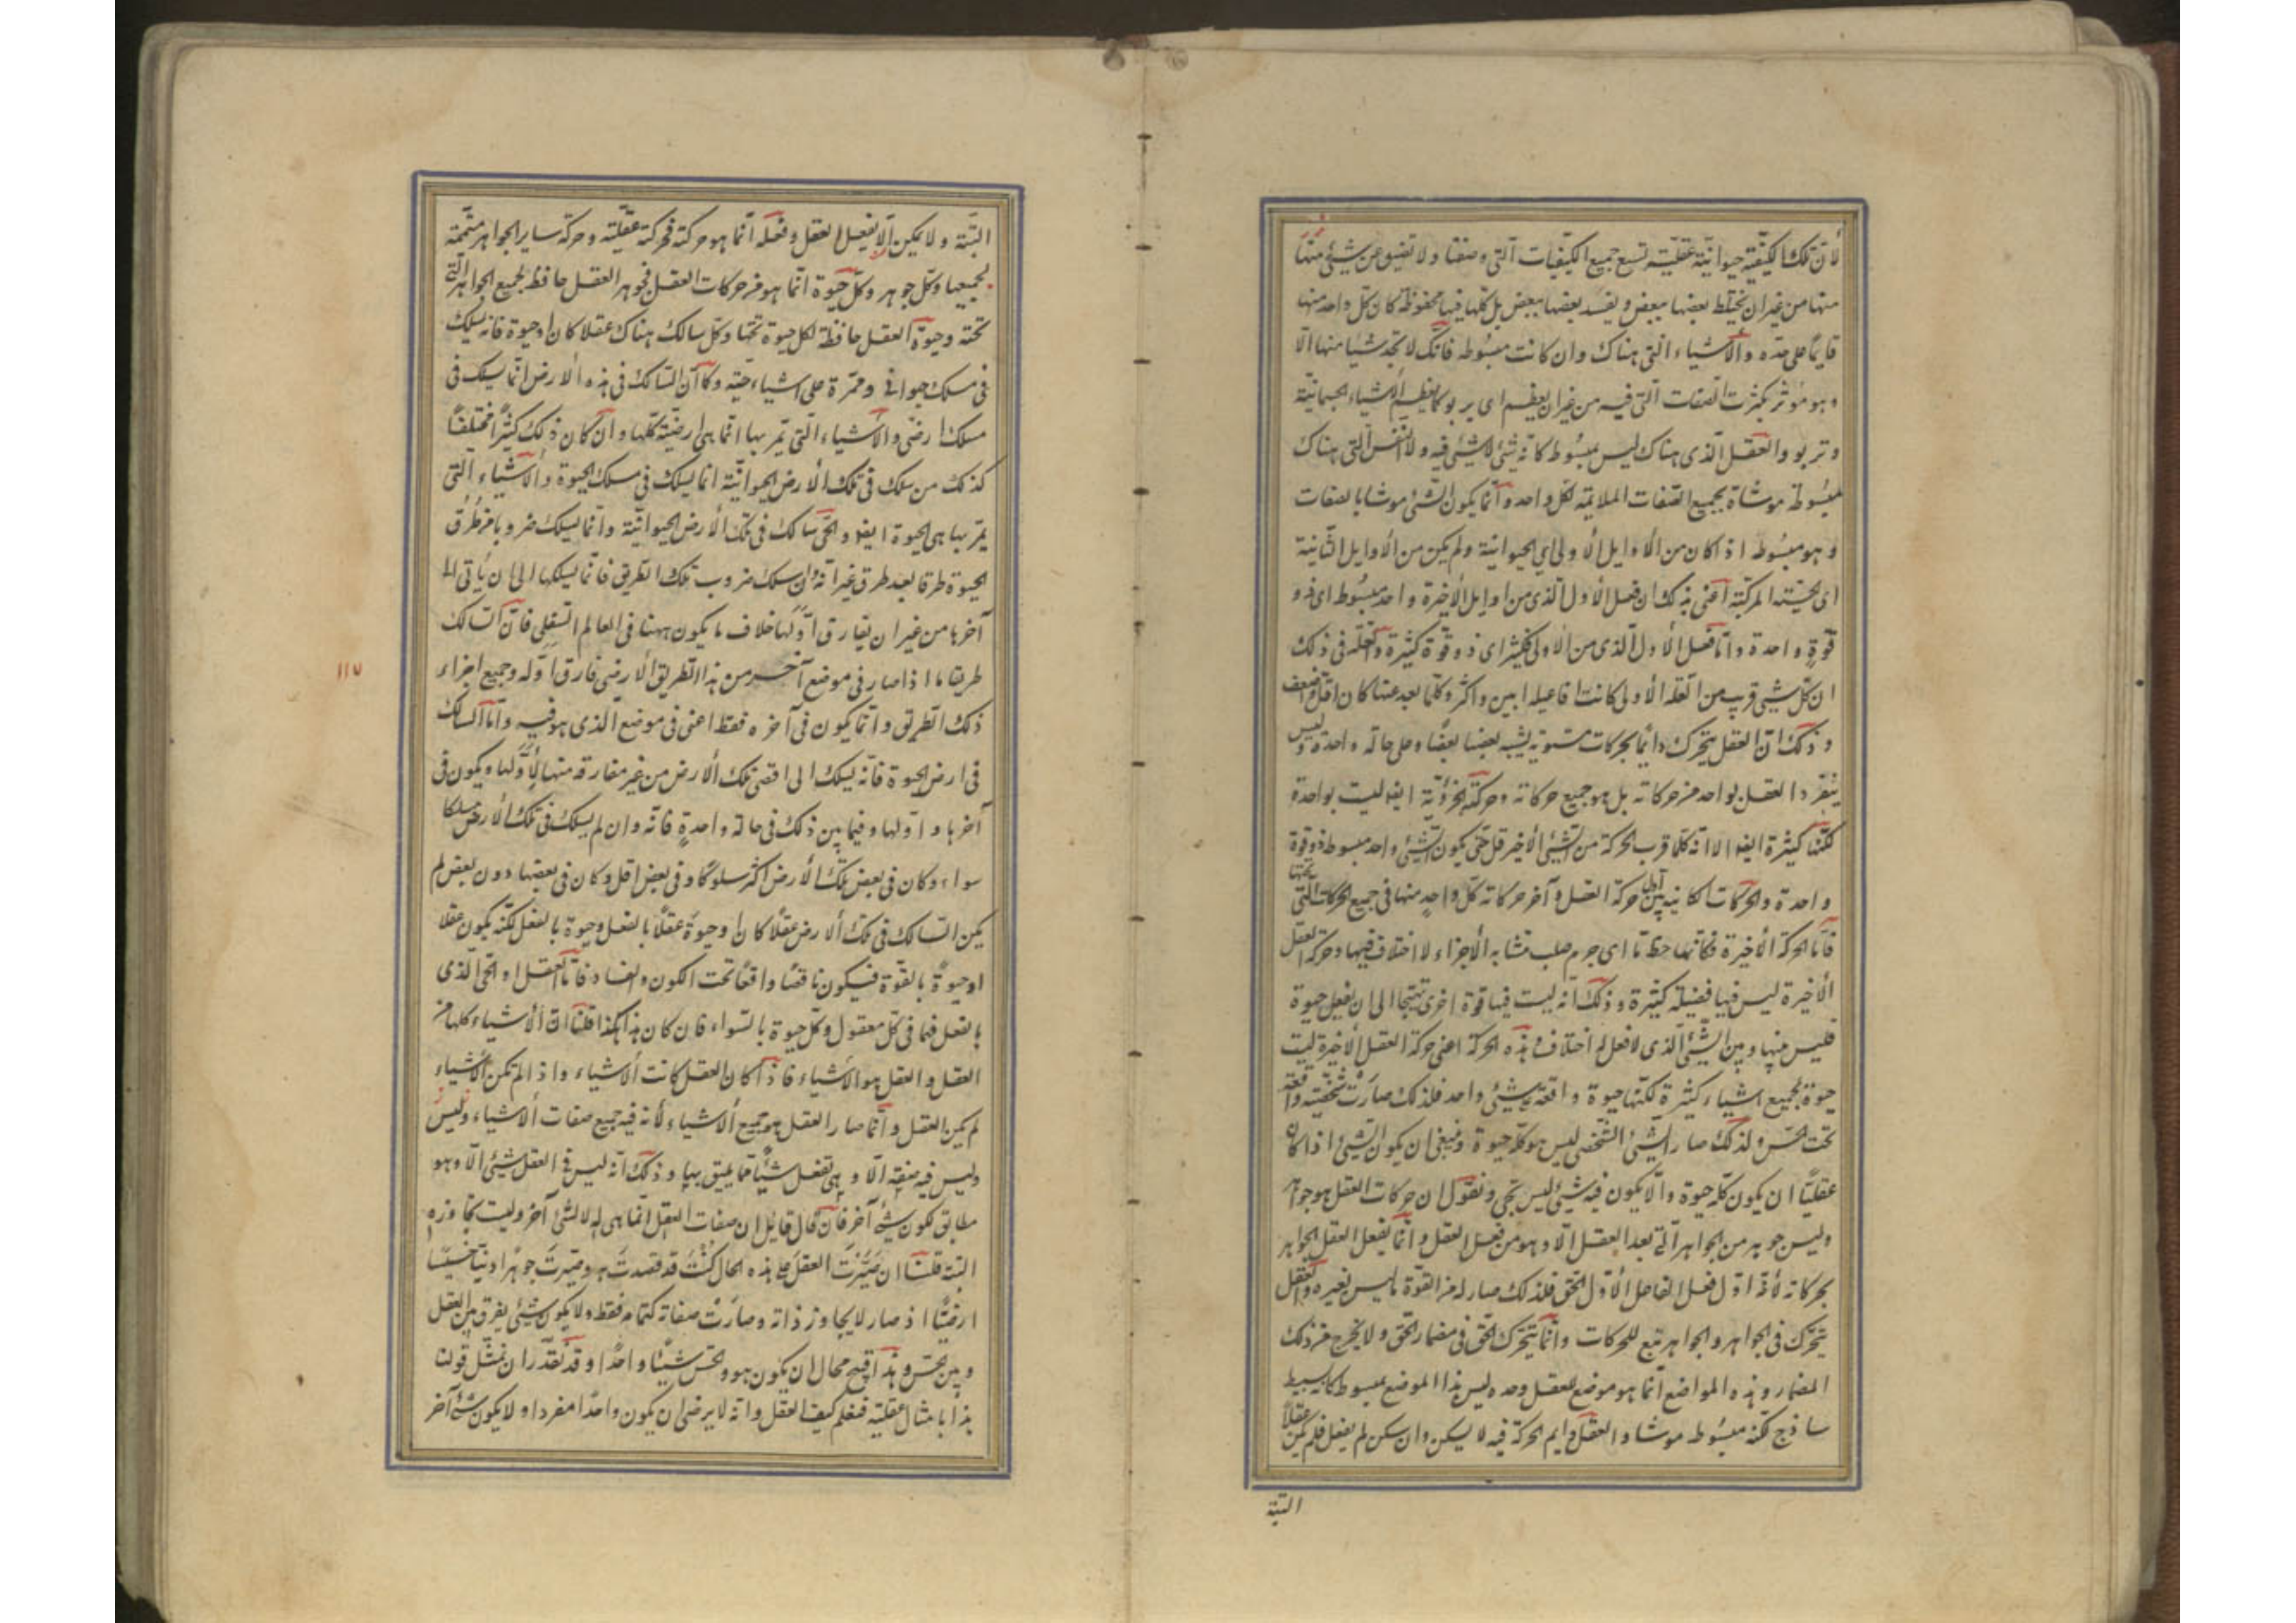 لأنّ تلك الكيفية حيوانيّة عقليّة تسع جميع الكيفيات التى وصفنا ولا تضيق عن شىء منها
منها من غير ان يختلط بعضها ببعض ويفسد بعضها ببعض بل كلها فيها محفوظة كان كل واحد منها
قايم على حده والأشياء التى هناك وان كانت مبسوطه فانك لا تجد شيئا منها الا
وهو موثر بكثرت الصفات التى فيه من غير ان يعظم اى يربو كما يعظم الأشياء الجسمانية
وتربو والعقل الذى هناك ليس مبسوط كانه شىء لا شىء فيه ولا النفس التى هناك
مبسوطة موشاة بجميع الصفات الملايمة لكل واحد وانما يكون الشىء موشا بالصفات
وهو مبسوط اذا كان من الأوايل الأولى اى الحيوانية ولم يكن من الأوايل الثانية
اى الحسّيه المركبة اعنى بذلك ان فعل الأول الذى من اوايل الأخيرة واحد مبسوط اى ذو
قوّة واحدة وامّا فعل الأول الذى من الأولى فكثير اى ذو قوّة كثيرة والعلّه فى ذلك
ان كلّ شىء قرب من العلّه الأولى كانت افاعيله ابين واكثر وكلما بعد عنها كان اقل واضعف
وذلك انّ العقل يتحرك دائما بحركات مستوية يشبه بعضها بعضا وعلى حالة واحدة وليس
ينفرد العقل بواحد من حركاته بل هو جميع حركاته وحركته الجزؤيّة ايضا ليست بواحدة
لكنّها كثيرة ايضا الا انه كلما قرب الحركة من الشىء الأخير قل حتى يكون الشىء واحد مبسوط ذو قوة
واحدة والحركات الكاينة بين اول حركة العقل وآخر حركاته كلّ واحد منها فى جميع الحركات التى تحتها
فأما الحركة الأخيرة فكانها خط ما اى جرم صلب متشابه الأجزاء لا اختلاف فيها وحركة العقل
الأخيرة ليس فيها فضيلة كثيرة وذلك انه ليست فيها قوة اخرى تهيجها الى ان يفعل حيوة
فليس بينها وبين الشىء الذى لا فعل له اختلاف وهذه الحركة اعنى حركة العقل الأخيرة ليست
حيوة لجميع اشياء كثيرة لكنّها حيوة واقعة على شىء واحد فلذلك صارت شخصيّة واقعة
تحت الحسّ ولذلك صار الشىء الشخصى ليس هو كلّه حيوة وينبغى ان يكون الشىء اذا كان
عقليّا ان يكون كلّه حيوة والّا يكون فيه شىء ليس بحى ونقول ان حركات العقل هو جواهر
وليس جوهر من الجواهر التى بعد العقل الّا وهو من فعل العقل وانّما يفعل العقل الجواهر
بحركاته لأنه اوّل فعل الفاعل الأوّل الحق فلذلك صار له من القوّة ما ليس لغيره والعقل
يتحرّك فى الجواهر والجواهر تبع للحركات وانّما يتحرّك الحقّ فى مضمار الحقّ ولا يخرج من ذلك
المضمار وهذه المواضع انّما هو موضع للعقل وحده ليس هذا الموضع مبسوط كانه بسيط
ساذج لكنه مبسُوط موشا والعقل دايم الحركة فيه لا يسكن وان سكن لم يفعل فلم يكن عقلاً
البتّة
البتّة ولا يمكن الّا يفعل العقل وفعله انّما هو حركته فحركته عقليّة وحركة ساير الجواهر متممة
لجميعها وكلّ جوهر وكلّ حيوة انّما هو من حركات العقل فجوهر العقل حافظ لجميع الجواهر الّتى
تحته وحيوة العقل حافظة لكل حيوة تحتها وكلّ سالك هناك عقلا كان او حيوة فانه يسلك
فى مسلك حيوانى وممرّه على اشياء حيّه وكما انّ السالك فى هذه الأرض انّما يسلك فى
مسلك ارضى والأشياء الّتى يمر بها انّما هى ارضيّة كلّها وان كان ذلك كثيرًا مختلفًا
كذلك من سلك فى تلك الأرض الحيوانيّة انّما يسلك فى مسلك الحيوة والأشياء الّتى
يمر بها هى الحيوة ايضا والحىّ سالك فى تلك الأرض الحيوانيّة وانّما يسلك ضروبا من طُرُق
الحيوة طرقا بعد طرق غير انّه وان سلك ضروب تلك الطريق فانّما يسلكها الى ان ياتى الى
آخرها من غير ان يفارق اوّلها خلاف ما يكون ههنا فى العالم السّفلى فانّ السالك
طريقا ما اذا صار فى موضع آخر من هذا الطريق الأرضى فارق اوّله وجميع اجزاء
ذلك الطريق وانّما يكون فى آخره فقط اعنى فى موضع الذى هو فيه وامّا السالك
فى ارض الحيوة فانّه يسلك الى اقصى تلك الأرض من غير مفارقه منها لأوّلها ويكون فى
آخرها واوّلها وفيما بين ذلك فى حالة واحدةٍ فانّه وان لم يسلك فى تلك الأرض مسلكا
سواء وكان فى بعض تلك الأرض اكثر سلوكًا وفى بعض اقل وكان فى بعضها دون بعض لم
يكن السالك فى تلك الأرض عقلًا كان او حيوةً عقلًا بالفعل وحيوة بالفعل لكنّه يكون عقلا
او حيوةً بالقوّة فيكون ناقصًا واقعًا تحت الكون والفساد فامّا العقل او الحىّ الذى
بالفعل فهما فى كلّ معقول وكلّ حيوة بالسّواء فان كان هذا هكذا قلنا انّ الأشياء كلها من
العقل والعقل هو الأشياء فاذا كان العقل كانت الأشياء واذا لم تكن الأشياء
لم يكن العقل وانّما صار العقل هو جميع الأشياء لأنه فيه جميع صفات الأشياء وليس
وليس فيه صفة الّا وهى تفعل شيئًا ممّا يليق بها وذلك انّه ليس فى العقل شىء الّا وهو
مطابق لكون شىء آخر فان قال قائل ان صفات العقل انّما هى له لا لشىء آخر وليست تجاوزه
البتة قلنا ان صيّرتَ العقل على هذه الحال كُنْتَ قد قصدتَ به وصيّرتَ جوهرًا دنيّا خسيسًا
ارضيًّا اذ صار لا يجاوز ذاته وصارَتْ صفاته كتمامه فقط ولا يكون شىء يفرق بين العقل
وبين الحسّ وهذا قبيح محال ان يكون هو والحسّ شيئًا واحدًا وقد نقدر ان نمثّل قولنا
هذا بامثال عقليّه فنعلم كيف العقل وانّه لا يرضى ان يكون واحدًا مفردا ولا يكون شىء آخر
١١٧